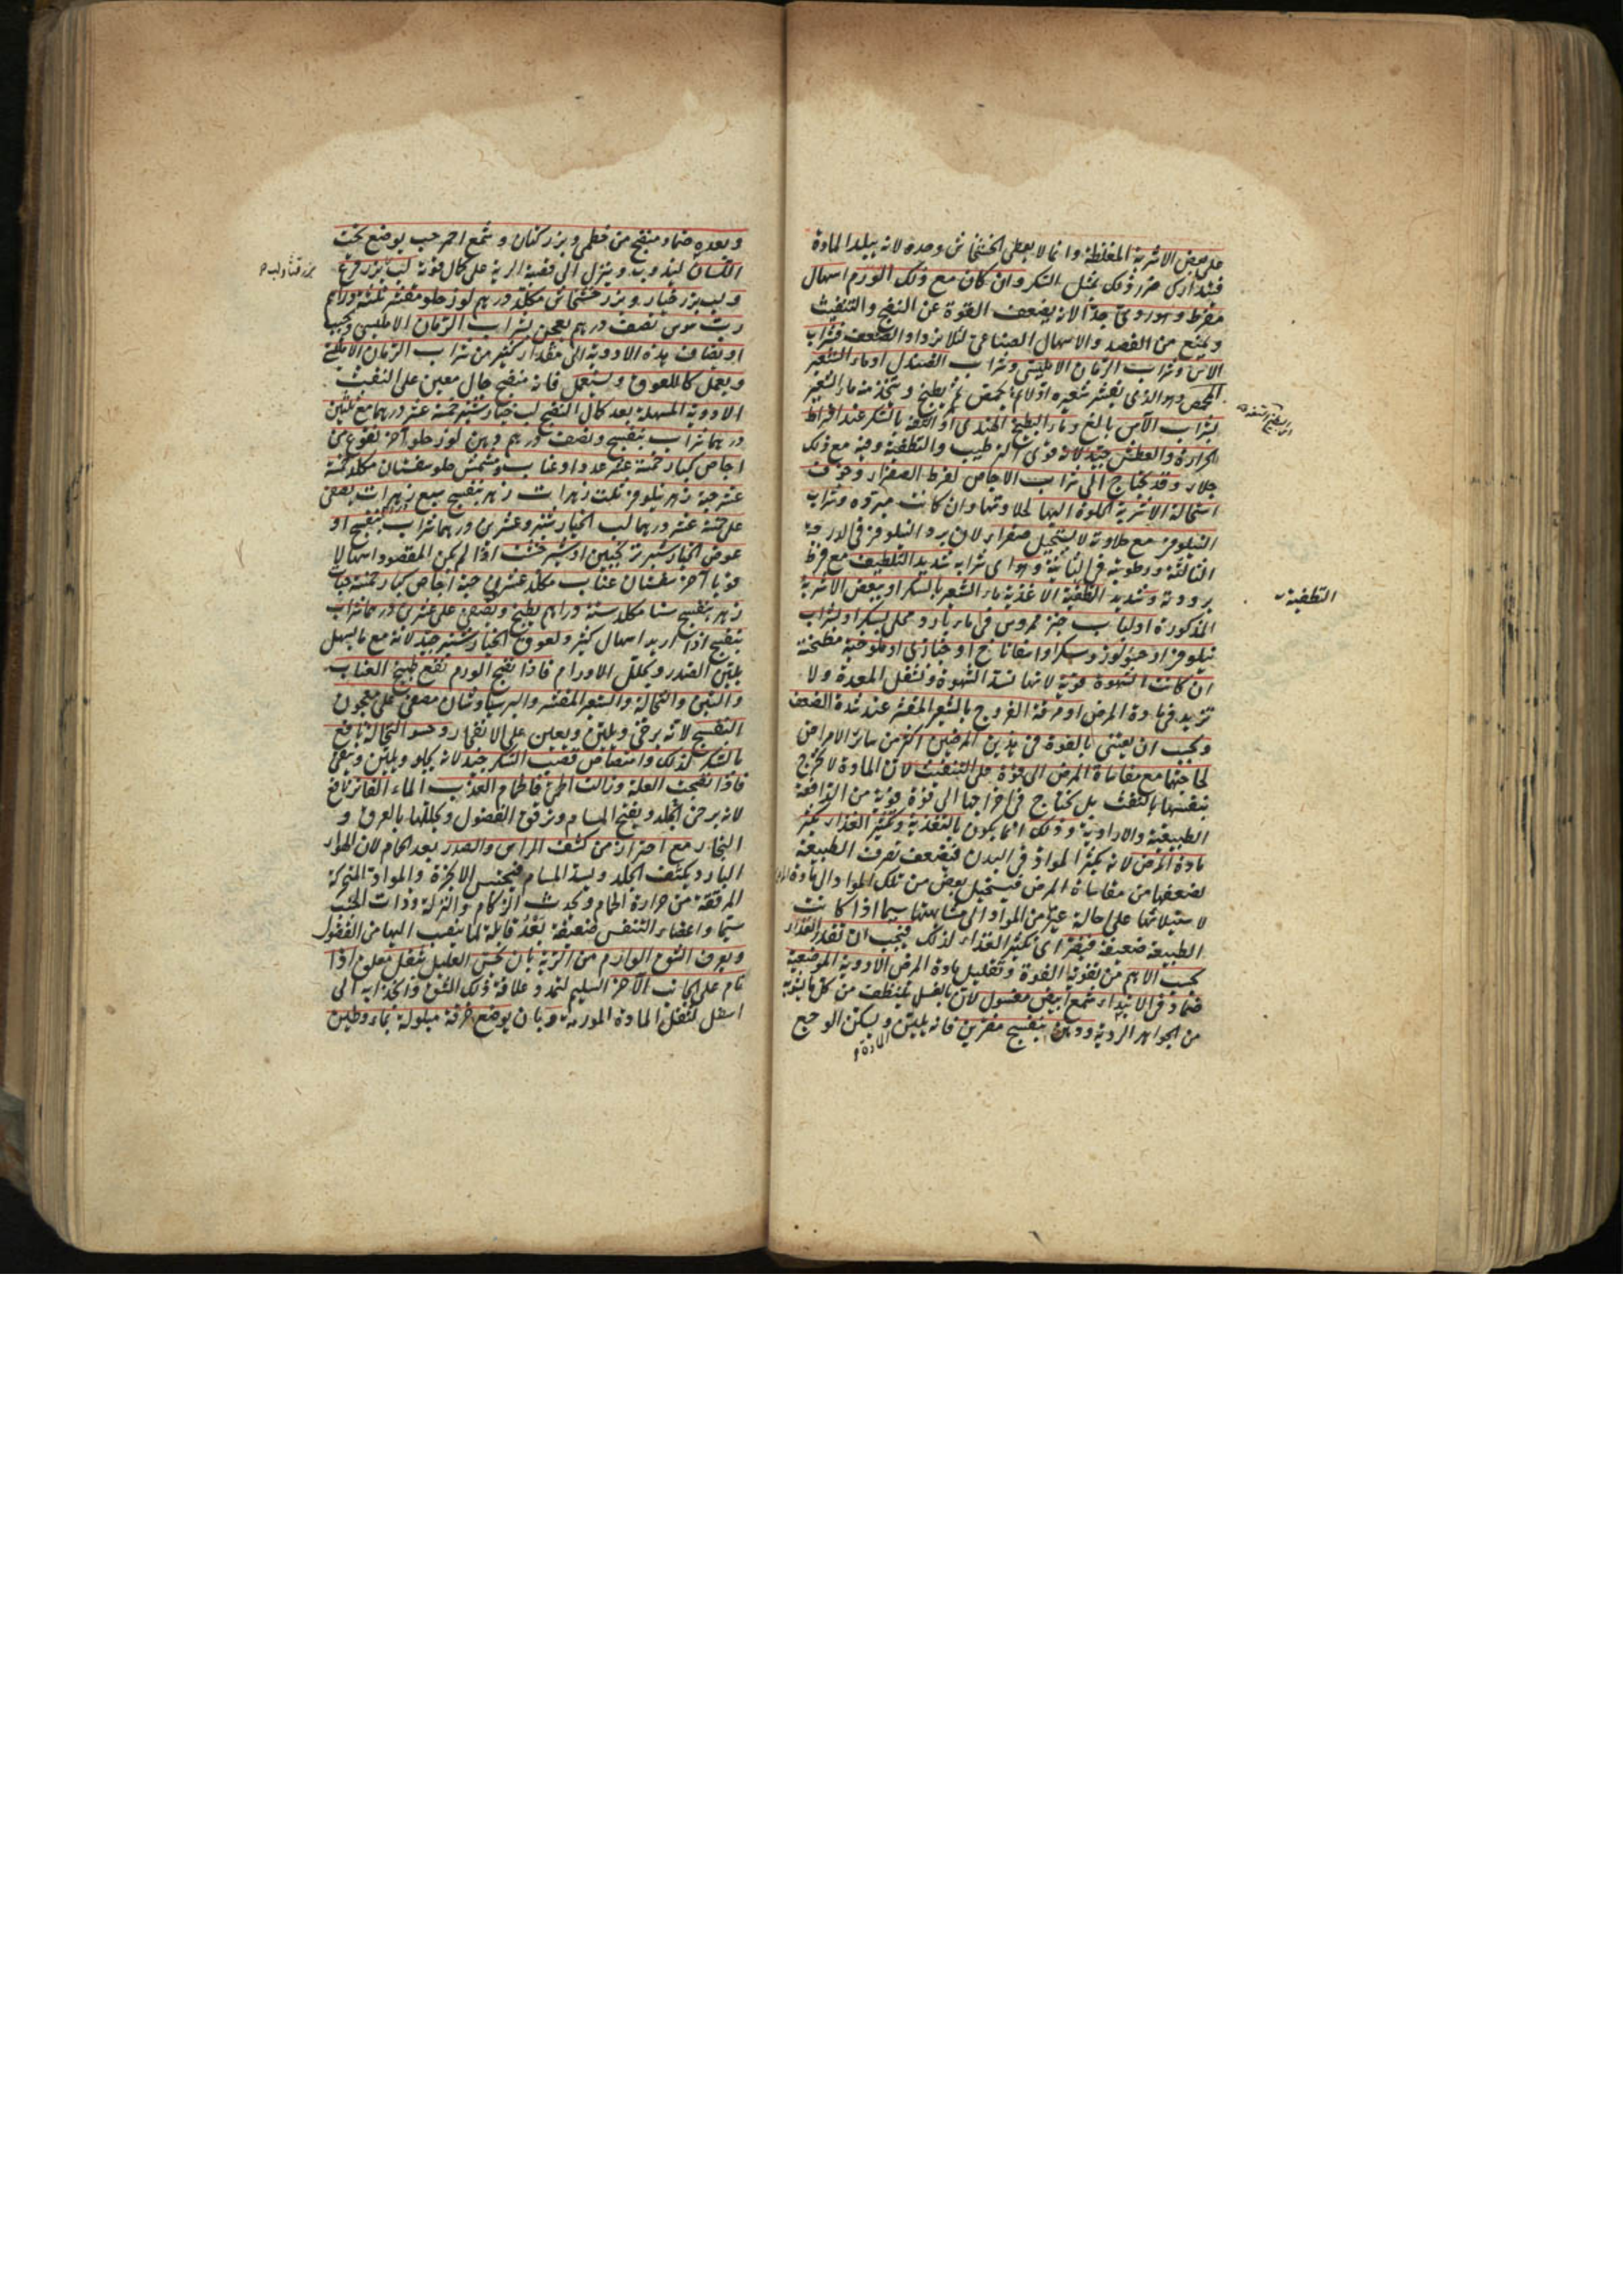 على بعض الاشربة المغلظة وانما لا يعطى الخشخاش وحده لانه يبلد المادة
فيتدارك ضرر ذلك بمثل السكر وان كان مع ذلك الورم اسهال
مفرط وهو ردئ جدا لانه يضعف القوة عن النضج والتنفيث
ويمنع من الفصد والاسهال الصناعى لئلا يزداد الضعف فشراب
الآس وشراب الرمان الامليسى وشراب الصندل او ماء الشعير
المحمص وهو الذى يقشر شعيره اولا ثم يحمص ثم يطبخ ويتخذ منه ماء الشعير
بشراب الآس بالغ وماء البطيخ الهندى او بالسكر عند افراط
الحرارة والعطش جيد لانه قوى الترطيب والتطفية وفيه مع ذلك
جلاء وقد يحتاج الى شراب الاجاص لفرط الصفراء وخوف
استحالة الاشربة الحلوة اليها لحلاوتها وان كانت مبردة وشراب
النيلوفر مع حلاوته لا يستحيل صفراء لان برد النيلوفر فى الدرجة
الثالثة ورطوبته فى الثانية وهو اى شرابه شديد التلطيف مع فرط
برودته وشديد التطفية الاغذية ماء الشعير بالسكر او ببعض الاشربة
المذكورة او لباب خبز ممروس فى ماء بارد ومحلى بسكر او بشراب
نيلوفر او حسو لوز وسكر او اسفاناخ او خبازى او ملوخية مطبخة
ان كانت الشهوة قوية لانها تسد الشهوة وتثقل المعدة ولا
تزيد فى مادة المرض او مرقة الفروج بالشعير المقشر عند شدة الضعف
ويجب ان يعتنى بالقوة فى هذين المرضين اكثر من سائر الامراض
لحاجتها مع مقاساة المرض الى قوة على التنفيث لان المادة لا تخرج
بنفسها بالنفث بل يحتاج فى اخراجها الى قوة قوية من الدافعة
الطبيعية والارادية وذلك انما يكون بالتغذية وتكثير الغذاء يكثر
مادة المرض لانه يكثر المواد فى البدن فيضعف تصرف الطبيعة
لضعفها من مقاساة المرض فيستحيل بعض من تلك المواد الى مادة المرض
لاستيلائها على احالة غيرها من المواد الى مشابهتها سيما اذا كانت
الطبيعة ضعيفة فيضر اى تكثير الغذاء لذلك فيجب ان تقدر الغذاء
بحسب الاهم من تقوية القوة وتقليل مادة المرض الادوية الموضعية
ضماد فى الابتداء شمع ابيض مغسول لان بالغسل يتنظف من كل ما يشوبه
من الجواهر الردية ودهن بنفسج مفترين فانه يلين ويسكن الوجع
المادة و
التطفية
وبعده ضماد منضج من خطمى وبزر كتان وشمع احمر حب يوضع تحت
اللسان ليذوب وينزل الى قصبة الرية على كمال قوته لب بزر قرع
ولب بزر خيار وبزر خشخاش مكلد درهم لوز حلو مقشر ثلثة دراهم
رب سوس نصف درهم يعجن بشراب الرمان الامليسى ويحبب
او يضاف هذه الادوية الى مقدار كثير من شراب الرمان الامليسى
ويعمل كاللعوق ويستعمل فانه منضج جال معين على النفث
الادوية المسهلة بعد كمال النضج لب خيارشنبر خمسة عشر درهما مع ثلثين
درهما شراب بنفسج ونصف درهم دهن لوز حلو آخر نقوع من
اجاص كبار خمسة عشر عددا وعناب ومشمش حلو سفستان مكلد خمسة
عشر حبة زهر نيلوفر ثلث زهرات زهر بنفسج سبع زهرات يصفى
على خمسة عشر درهما لب الخيارشنبر وعشرين درهما شراب بنفسج او
عوض الخيارشنبر ترنجبين او شير خشت اذا لم يكن المقصود اسهالا
قويا آخر سفستان عناب مكلد عشرين حبة اجاص كبار خمسة حبات
زهر بنفسج سنا مكلد ستة دراهم يطبخ ويصفى على عشرين درهما شراب
بنفسج اذا اريد اسهال كثير ولعوق الخيارشنبر جيد لانه مع ما يسهل
يلين الصدر ويحلل الاورام فاذا نضج الورم نفع طبيخ العناب
والتين والنخالة والشعير المقشر والبرسياوشان مصفى على معجون
البنفسج لانه يرخى ويلين ويعين على الانفجار وحسو النخالة نافع
بالسكر لذلك وامتصاص قصب السكر جيد لانه يجلو ويلين وينقى
فاذا نضجت العلة وزالت الحمى فالحمام العذب الماء الفاتر نافع
لانه يرخى الجلد ويفتح المسام ويرقق الفضول ويحللها بالعرق و
البخار مع احتراز من كشف الراس والصدر بعد الحمام لان الهواء
البارد يكثف الجلد ويسد المسام فيحتبس الابخرة والمواد المتحركة
المرققة من حرارة الحمام ويحدث الزكام والنزلة وذات الجنب
سيما واعضاء التنفس ضعيفة بعد قابلة لما ينصب اليها من الفضول
ويعرف الشق الوارم من الرية بان يحس العليل بثقل معلوم اذا
نام على الجانب الآخر السليم لتمدد علاقة ذلك الشق وانجذابه الى
اسفل لثقل المادة المورمة وبان يوضع خرقة مبلولة بماء وطين